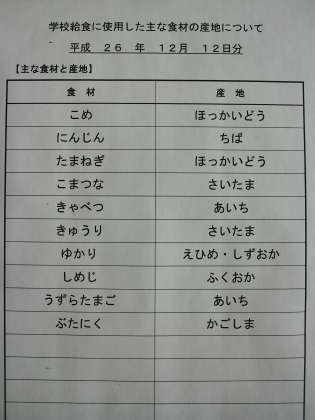 学校給食に使用した主な食材の産地について
平成 26 年 12月 12日分
【主な食材と産地】
食 材 産 地
こめ ほっかいどう
にんじん ちば
たまねぎ ほっかいどう
こまつな さいたま
きゃべつ あいち
きゅうり さいたま
ゆかり えひめ・しずおか
しめじ ふくおか
うずらたまご あいち
ぶたにく かごしま